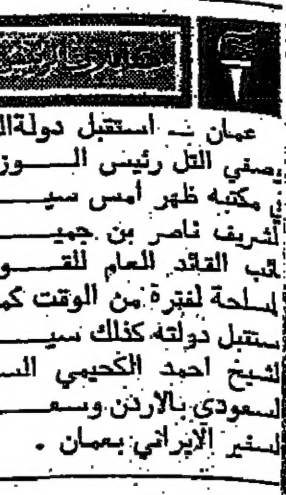 عمان ـ استقبل دولة ال
وصفي التل رئيس الوز
مكتبه ظهر امس سيـ
الشريف ناصر بن جميـ
ائب القائد العام للقو
لمسلحة لفترة من الوقت كما
ستقبل دولته كذلك سيـ
لشيخ احمد الكحيمي السـ
لسعودي بالاردن وسعـ
لسفير الايراني بعمان .